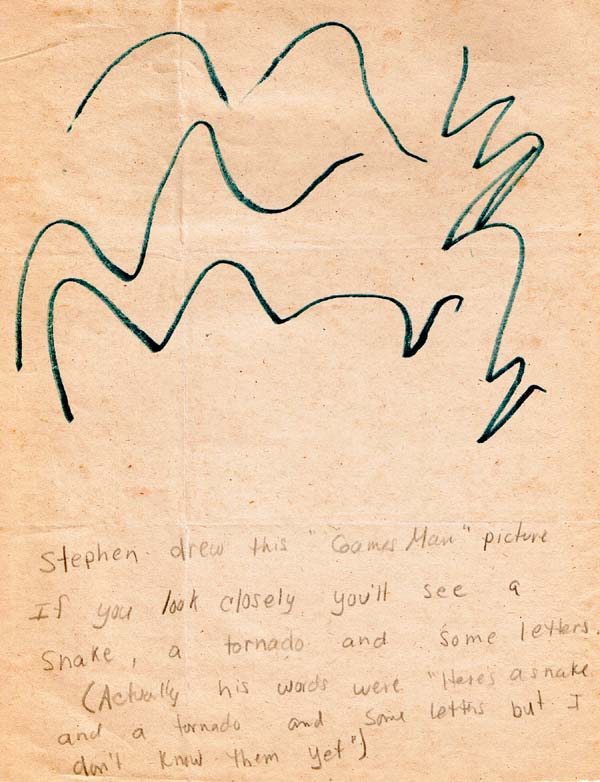 Stephen drew this "Games Man" picture
If you look closely you'll see a
snake, a tornado and some letters.
(Actually his words were "Here's a snake
and a tornado and some letters but I
don't know them yet")